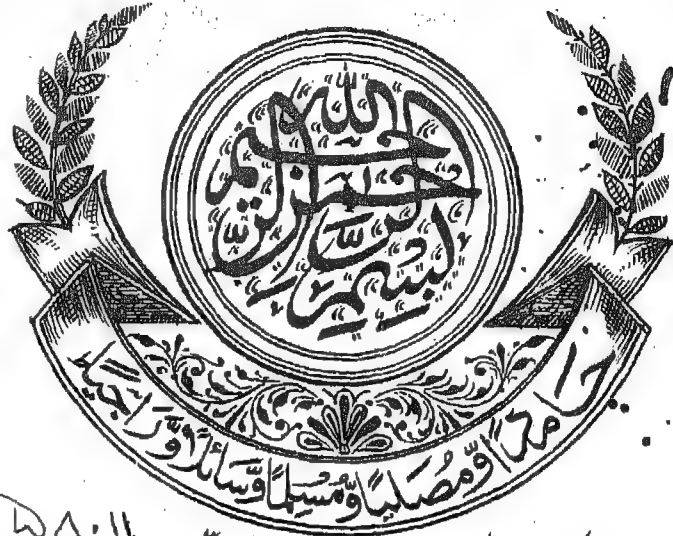 بِسْمِ اللهِ الرَّحْمٰنِ الرَّحِيْمِ
حَامِدًا وَّمُصَلِّيًا وَّمُسَلِّمًا وَّسَائِلًا وَّرَاجِيًا